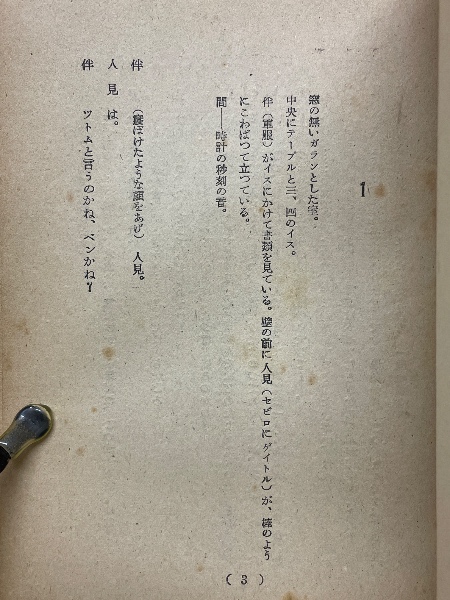 1
窓の無いガランとした室。
中央にテーブルと三、四のイス。
伴（軍服）がイスにかけて書類を見ている。壁の前に人見（セビロにゲイトル）が、棒のよう
にこわばつて立つている。
間――時計の秒刻の音。
伴　（寝ぼけたような顔をあげ）人見。
人見　は。
伴　ツトムと言うのかね、ベンかね？
( 3 )